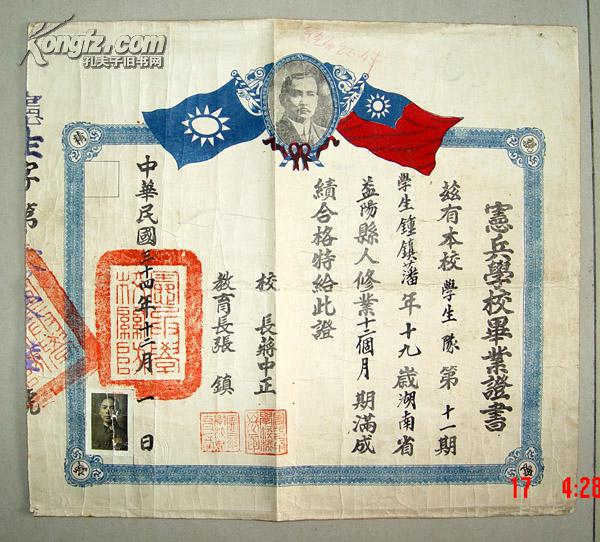 Kongfz.com
孔夫子旧书网
憲兵學校畢業證書
茲有本校學生隊第十一期
學生鍾鎮藩年十九歲湖南省
益陽縣人修業十二個月期滿成
績合格特給此證
校長蔣中正
教育長張鎮
中華民國三十四年十二月一日
17 4:28